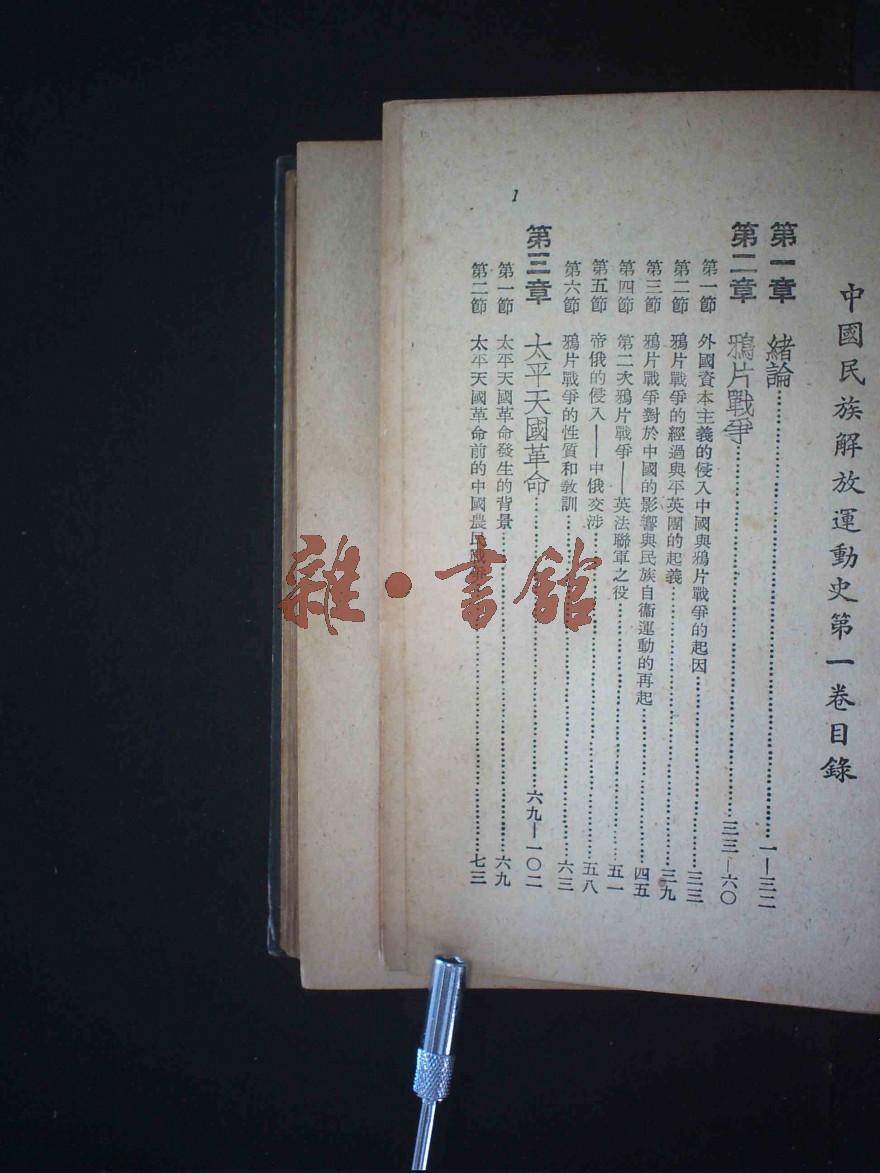 中國民族解放運動史第一卷目錄
第一章 緒論……一—三二
第二章 鴉片戰爭……三三—六〇
第一節 外國資本主義的侵入中國與鴉片戰爭的起因……三三
第二節 鴉片戰爭的經過與平英團的起義……三九
第三節 鴉片戰爭對於中國的影響與民族自衞運動的再起……四五
第四節 第二次鴉片戰爭——英法聯軍之役……五一
第五節 帝俄的侵入——中俄交涉……五八
第六節 鴉片戰爭的性質和敎訓……六三
第三章 太平天國革命……六九—一〇二
第一節 太平天國革命發生的背景……六九
第二節 太平天國革命前的中國農民戰爭……七三
1
雜·書館